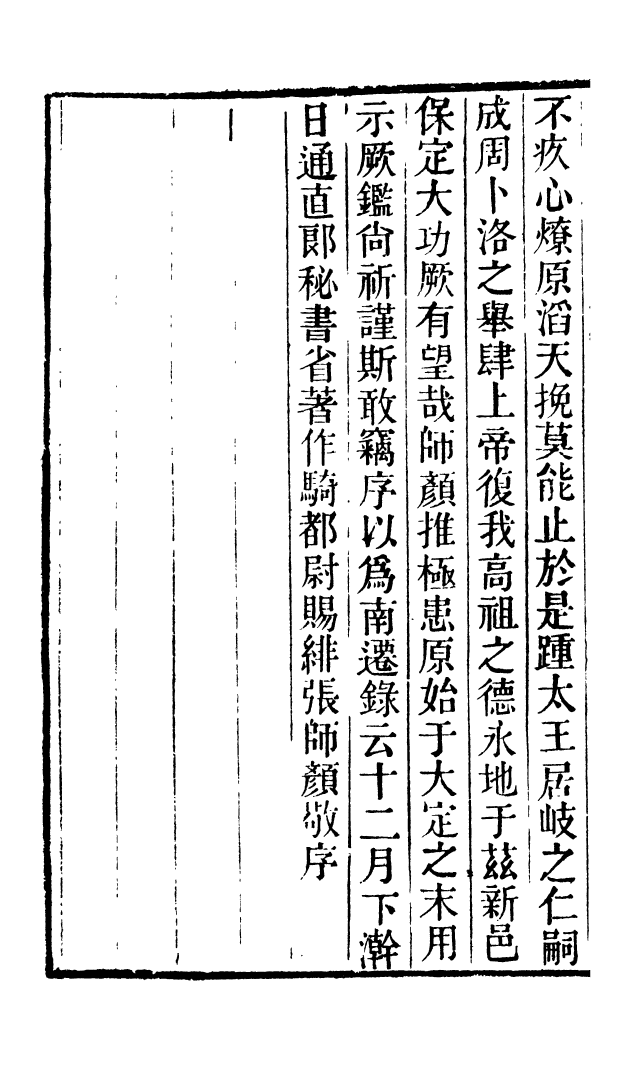 不疚心燎原滔天挽莫能止於是踵太王居岐之仁嗣
成周卜洛之舉肆上帝復我高祖之德永地于茲新邑
保定大功厥有望哉師顏推極患原始于大定之末用
示厥鑑尙祈謹斯敢竊序以爲南遷錄云十二月下澣
日通直郞秘書省著作騎都尉賜緋張師顏敬序